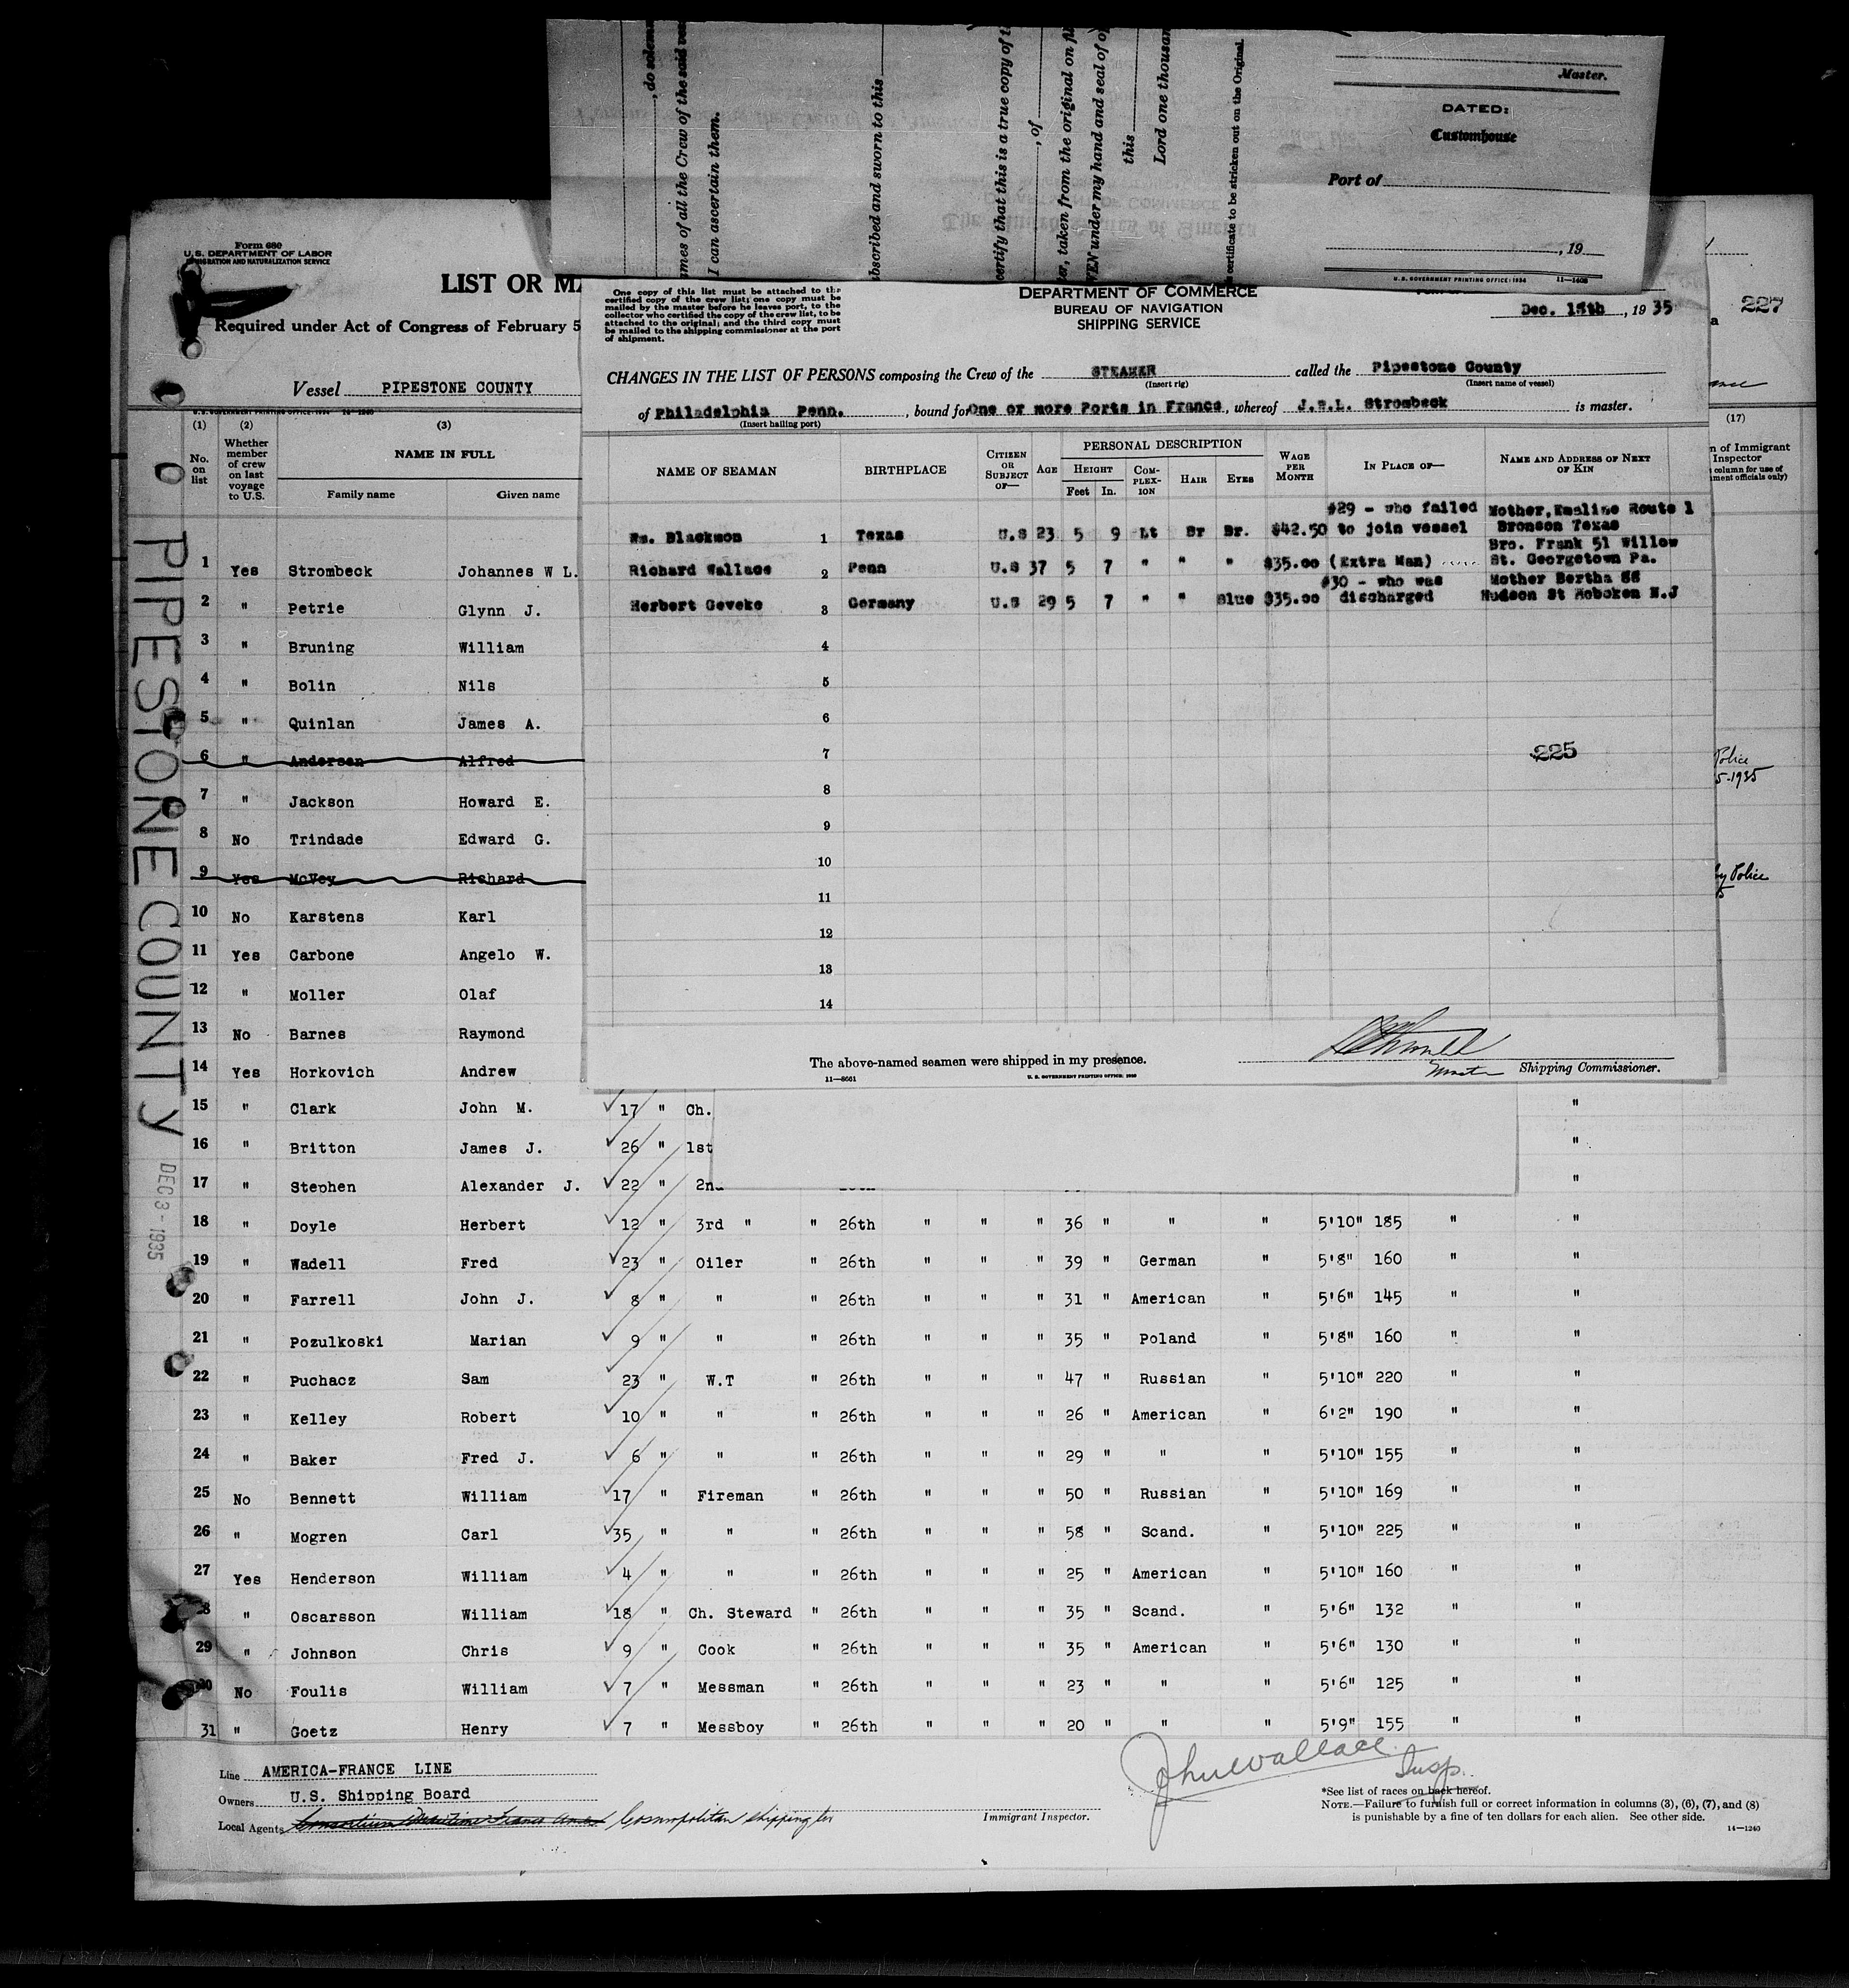 , do solem
mes of all the Crew of the said ves
I can ascertain them.
bscribed and sworn to this
certify that this is a true copy of t
, of
er, taken from the original on fi
VEN under my hand and seal of o
this
Lord one thousan
certificate to be stricken out on the Original.
Master.
DATED:
Customhouse
Port of
, 19
U.S. GOVERNMENT PRINTING OFFICE: 1934 11—1408
Form 680
U.S. DEPARTMENT OF LABOR
IMMIGRATION AND NATURALIZATION SERVICE
LIST OR MA
Required under Act of Congress of February 5
Vessel PIPESTONE COUNTY
(1) (2) (3)
No. on list
Whether member of crew on last voyage to U.S.
NAME IN FULL
Family name Given name
One copy of this list must be attached to the
certified copy of the crew list; one copy must be
mailed by the master before he leaves port, to the
collector who certified the copy of the crew list, to be
attached to the original; and the third copy must
be mailed to the shipping commissioner at the port
of shipment.
DEPARTMENT OF COMMERCE
BUREAU OF NAVIGATION
SHIPPING SERVICE
, 19 35
227
CHANGES IN THE LIST OF PERSONS composing the Crew of the STEAMER called the Pipestone County
(Insert rig) (Insert name of vessel)
of Philadelphia Penn. , bound for One or more Ports in France, whereof J.W.L. Strombeck is master.
(Insert hailing port)
NAME OF SEAMAN BIRTHPLACE CITIZEN OR SUBJECT OF— AGE PERSONAL DESCRIPTION WAGE PER MONTH IN PLACE OF— NAME AND ADDRESS OF NEXT OF KIN
HEIGHT COMPLEXION HAIR EYES
Feet In.
(17)
n of Immigrant
Inspector
column for use of
ment officials only)
#29 - who failed Mother, Emaline Route 1
Wm. Blackmon 1 Texas U.S 23 5 9 Lt Br Br. $42.50 to join vessel Bronson Texas
Bro. Frank 51 Willow
Richard Wallace 2 Penn U.S 37 5 7 " " " $35.00 (Extra Man) St. Georgetown Pa.
#30 - who was Mother Bertha
Herbert Geveke 3 Germany U.S 29 5 7 " " Blue $35.00 discharged Hudson St Hoboken N.J
4
5
6
7 225
8
9
10
11
12
13
14
The above-named seamen were shipped in my presence.
Master Shipping Commissioner.
11—8661 U. S. GOVERNMENT PRINTING OFFICE: 1935
Police
5-1935
by Police
PIPESTONE COUNTY
DEC 3 - 1935
1 Yes Strombeck Johannes W L.
2 " Petrie Glynn J.
3 " Bruning William
4 " Bolin Nils
5 " Quinlan James A.
6 " Andersen Alfred
7 " Jackson Howard E.
8 No Trindade Edward G.
9 Yes McVey Richard
10 No Karstens Karl
11 Yes Carbone Angelo W.
12 " Moller Olaf
13 No Barnes Raymond
14 Yes Horkovich Andrew
15 " Clark John M. 17 " Ch. "
16 " Britton James J. 26 " 1st "
17 " Stephen Alexander J. 22 " 2n "
18 " Doyle Herbert 12 " 3rd " " 26th " " " 36 " " " 5'10" 185 " "
19 " Wadell Fred 23 " Oiler " 26th " " " 39 " German " 5'8" 160 " "
20 " Farrell John J. 8 " " " 26th " " " 31 " American " 5'6" 145 " "
21 " Pozulkoski Marian 9 " " " 26th " " " 35 " Poland " 5'8" 160 " "
22 " Puchacz Sam 23 " W.T " 26th " " " 47 " Russian " 5'10" 220 " "
23 " Kelley Robert 10 " " " 26th " " " 26 " American " 6'2" 190 " "
24 " Baker Fred J. 6 " " " 26th " " " 29 " " " 5'10" 155 " "
25 No Bennett William 17 " Fireman " 26th " " " 50 " Russian " 5'10" 169 " "
26 " Mogren Carl 35 " " " 26th " " " 58 " Scand. " 5'10" 225 " "
27 Yes Henderson William 4 " " " 26th " " " 25 " American " 5'10" 160 " "
28 " Oscarsson William 18 " Ch. Steward " 26th " " " 35 " Scand. " 5'6" 132 " "
29 " Johnson Chris 9 " Cook " 26th " " " 35 " American " 5'6" 130 " "
30 No Foulis William 7 " Messman " 26th " " " 23 " " " 5'6" 125 " "
31 " Goetz Henry 7 " Messboy " 26th " " " 20 " " " 5'9" 155 " "
Line AMERICA-FRANCE LINE
Owners U.S. Shipping Board
Local Agents Cosmopolitan shipping
John Wallace Insp.
Immigrant Inspector.
*See list of races on back hereof.
NOTE.—Failure to furnish full or correct information in columns (3), (6), (7), and (8)
is punishable by a fine of ten dollars for each alien. See other side.
14—1240